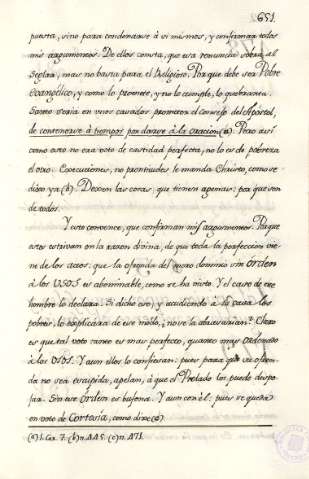 651.
puesta, sino para condenarse à si mismos, y confirmar todos
mis argumentos. De ellos consta, que esa renuncia sobra al
Seglar, mas no basta para el Religioso. Porque debe ser Pobre
Evangelico, y como lo promete, y no lo cumple, lo quebranta.
voto en unos casados prometer el consejo del Apostol,
de contenerse à tiempos por darse à la oracion (a). Pero asi
como este no era voto de castidad perfecta, no lo es de pobreza
el otro. Execuciones, no prontitudes le manda Christo, como se
dixo ya (b). Dexen las cosas, que tienen agenas: por que son
de todos.
Y esto convence, que confirman mis argumentos. Porque
estos estrivan en la razon divina, de que toda la perfeccion vie-
ne de los actos: que la ofrenda del dominio sin orden
à los USOS es abominable, como se ha visto. Y el caso de ese
hombre lo declara. Si dicho oro, y acudiendo à la casa los
pobres, lo explicára de ese modo, ¿no se la abominarian? Claro
es que tal voto tanto es mas perfecto, quanto mas ordenado
à los USOS. Y aun ellos lo confiesan: pues para que la ofren-
da no sea estupida, apelan, à que el Prelado los puede despo-
jar. Sin ese orden es bufona. Y aun con èl: pues se queda
en voto de Cortesía, como dixe (c)
(a) 1. Cor. 7. (b) n. 445. (c) n. 471.